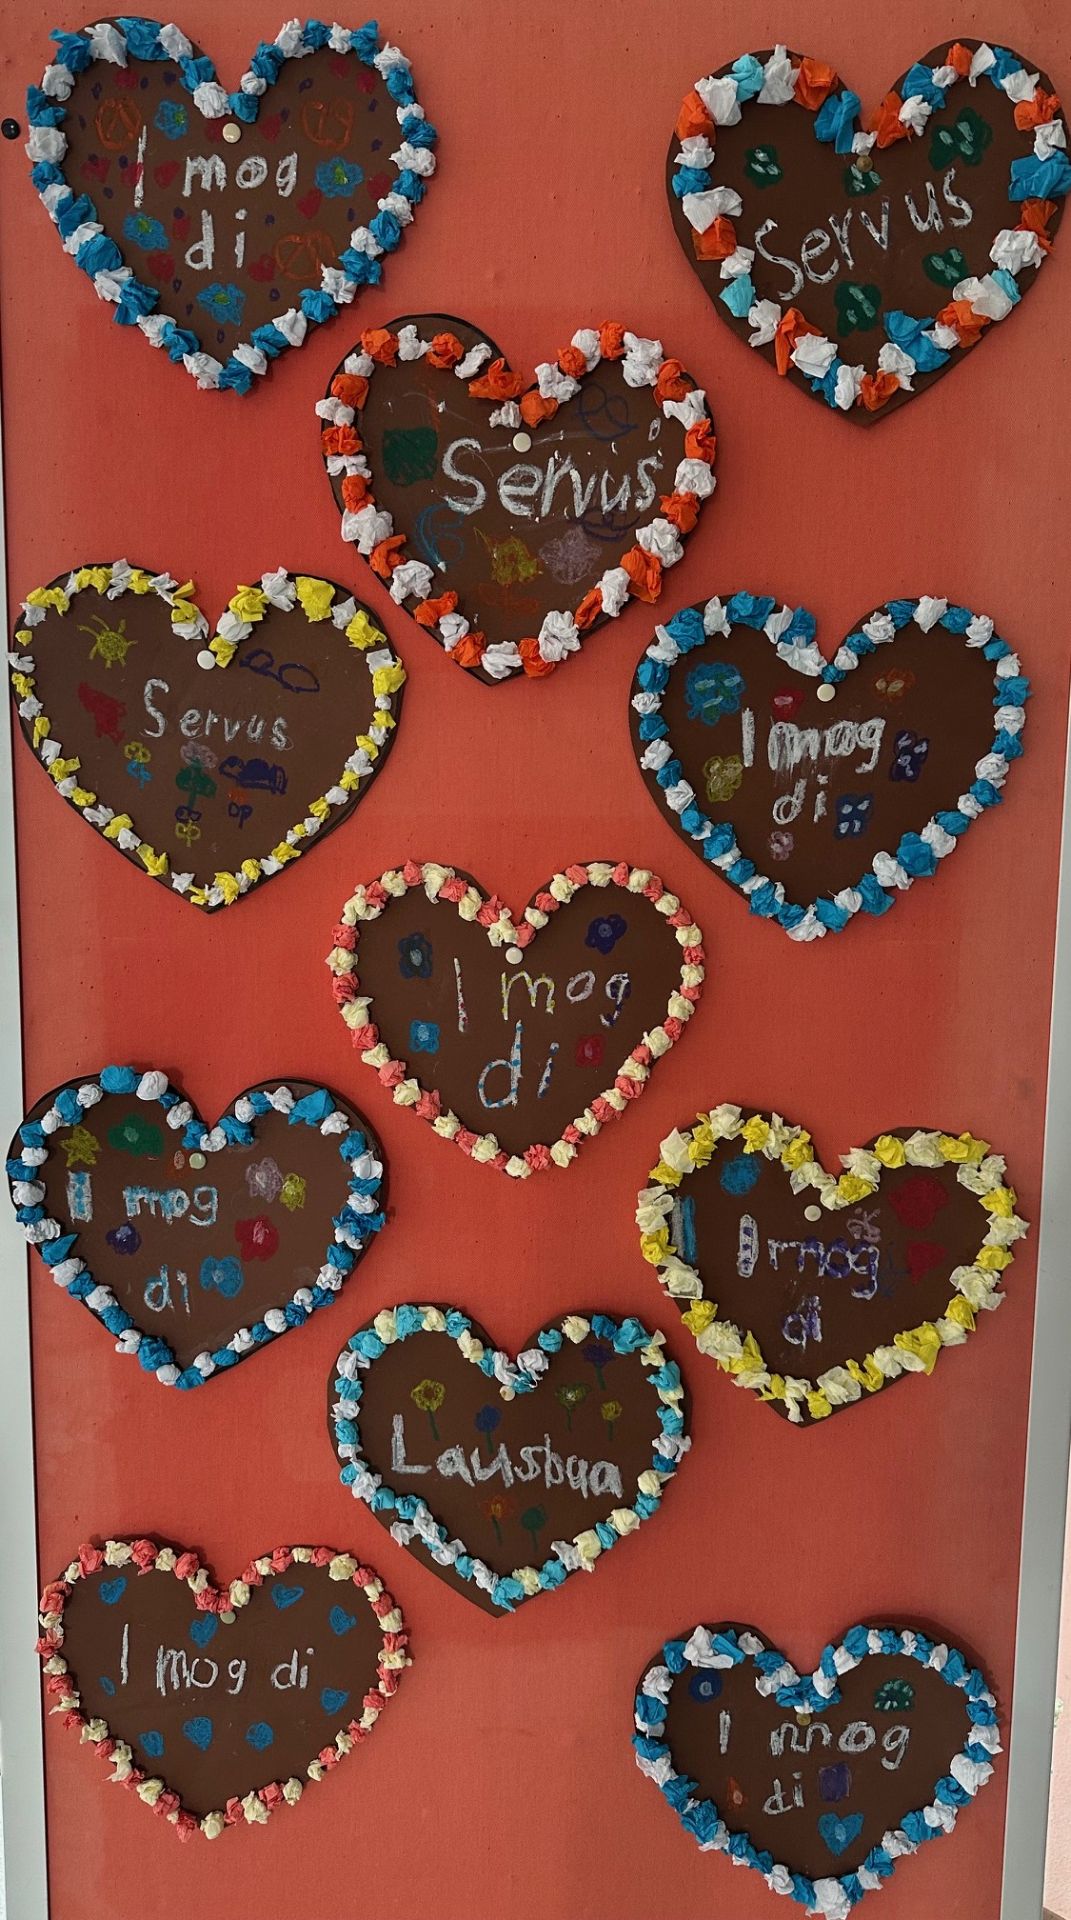 I mog
di
Servus
Servus
Servus
I mog
di
I mog
di
I mog
di
I mog
di
Lausbua
I mog di
I mog
di